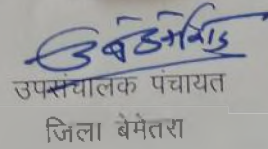 उपसंचालक पंचायत
जिला बेमेतरा